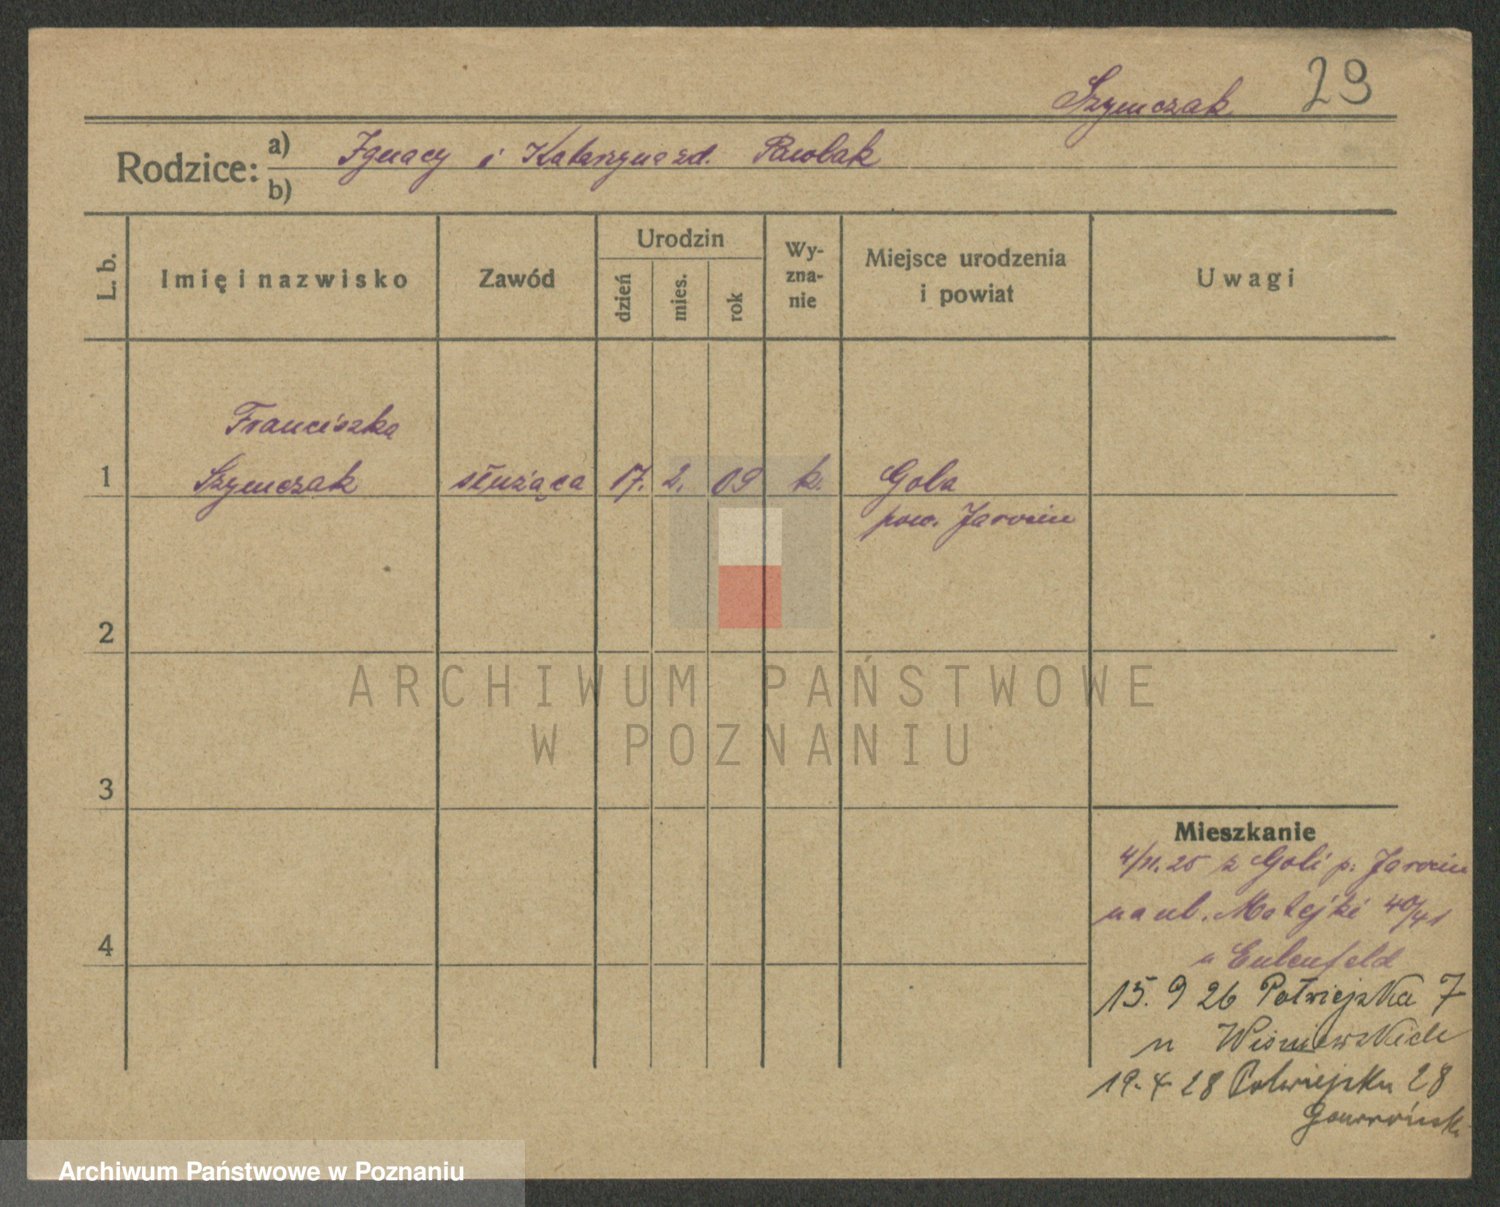 Szymczak 29
Rodzice: a) Ignacy i Katarzyna zd. Pawlak
b)
L. b.
Imię i nazwisko
Zawód
Urodzin
dzień
mies.
rok
Wy-
zna-
nie
Miejsce urodzenia
i powiat
Uwagi
Franciszka
1 Szymczak służąca 17. 2. 09 k. Gola
pow. Jarocin
2
3
4
Mieszkanie
4/11.25 z Goli p. Jarocin
na ul. Matejki 40/41
u Eulenfeld
15. 9 26 Półwiejska 7
u Wiśniewskich
19. 4 28 Półwiejska 28
ARCHIWUM PAŃSTWOWE
W POZNANIU
Archiwum Państwowe w Poznaniu